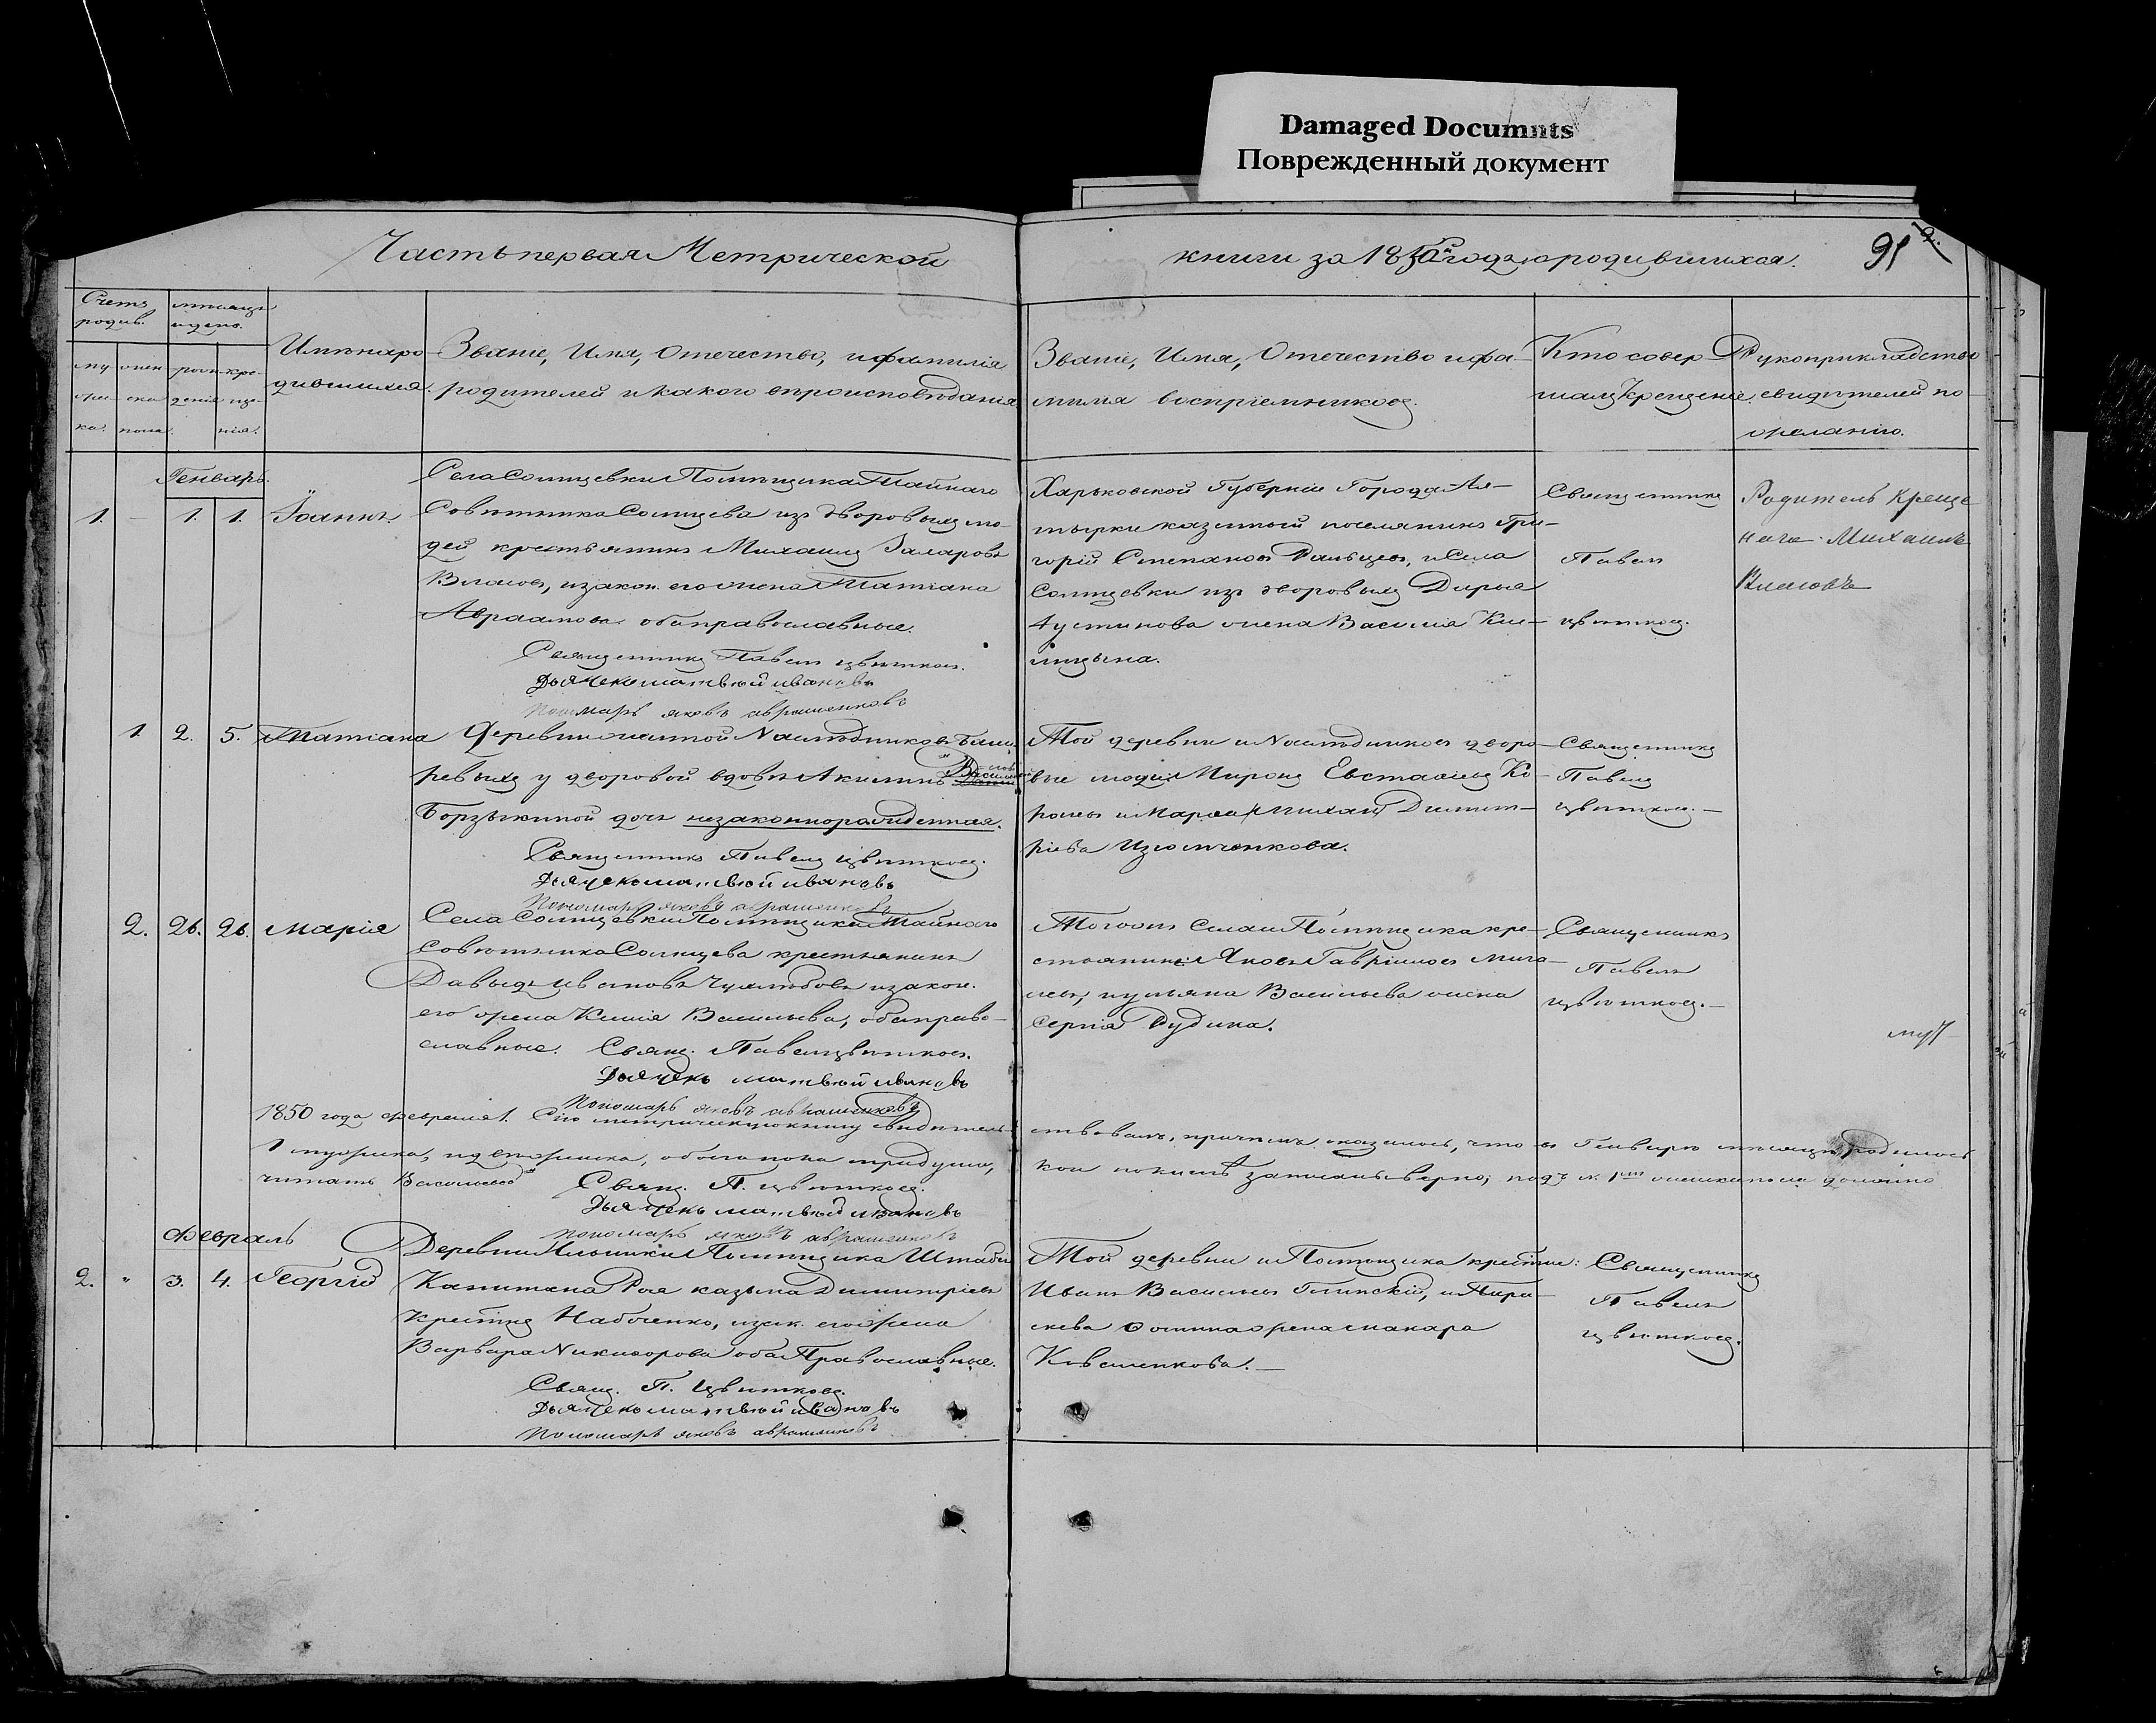 Damaged Documnts
Поврежденный документ
Часть первая Метрической
книги за 1850й года, о родившихся.
91
2.
Счетъ родив.
мѣсяцъ и день.
Имѣна ро-
дившихся.
Званіе, Имя, Отечество, и фамилія
родителей и какого вѣроисповѣданія
Званіе, Имя, Отечество и фа-
милія воспріемниковъ.
Кто совер-
шалъ крещеніе.
Рукоприкладство
свидѣтелей по
желанію.
му
жес
ка.
жен
ска
пола.
рож
денія
кре-
ще-
нія.
Генварь.
1. - 1. 1. Іоаннъ.
Села Солнцевки Помѣщика Тайнаго
Совѣтника Солнцева изъ дворовыхъ лю-
дей крестьянинъ Михаилъ Захаровъ
Власовъ, и закон. его жена Татіана
Авраамова оба православные.
Священникъ Павелъ Цвѣтковъ.
Дьячекъ матвѣй ивановъ
Пономарь яковъ авраменковъ
Харьковской Губерніи Города Ах-
тырки казенный поселянинъ Гри-
горій Степановъ Рапьцевъ, и Села
Солнцевки изъ дворовыхъ Дарья
Устинова жена Василія
Священникъ
Павелъ
Цвѣтковъ.
Родитель креще
наго Михаилъ
Власовъ
1. 2. 5. Татіана
Деревни Наслѣдниковъ
ревыхъ у дворовой вдовы Акилины Васильевой
Борзыкиной дочь незаконнорожденная.
Священникъ Павелъ Цвѣтковъ.
Дьячекъ матвѣй ивановъ
Пономарь яковъ авраменковъ
Той деревни и Наслѣдниковъ дворо-
вые люди Миронъ Евстафіевъ Ко-
и Марѳа Михаи Димит-
ріева Изюмченкова.
Священникъ
Павелъ
Цвѣтковъ.-
2. 26. 26. Марія
Села Солнцевки Помѣщика Тайнаго
Совѣтника Солнцева крестьянинъ
Давыдъ Ивановъ и закон.
его жена Ксенія Васильева, оба право-
славные. Свящ. Павелъ Цвѣтковъ.
Дьячекъ матвѣй ивановъ
Пономарь яковъ авраменковъ
Того Села и Помѣщика кре-
стьянинъ Яковъ Гавріиловъ
и ульяна Васильева жена
Сергія Дудина.
Священникъ
Павелъ
Цвѣтковъ.-
1850 года февраля 1. Сію метрическую книгу свидѣтель-
ствовалъ, причемъ оказалось, что въ Генварѣ мѣсяцѣ родилось
1 мужеска, 2 женска, обоего пола три души,
кои по книгѣ записаны вѣрно; подъ № 1мъ женска пола должно
читать Васильевой Свящ. П. Цвѣтковъ.
Дьячекъ матвѣй ивановъ
пономарь яковъ авраменковъ
Февраль
2. " 3. 4. Георгій
Деревни Ильинки Помѣщика Штабсъ
Капитана Роя казьма Димитріевъ
крестнъ Набоченко, и зак. его жена
Варвара Никифорова оба Православные.
Свящ. П. Цвѣтковъ.
Дьячекъ матвѣй ивановъ
Пономарь яковъ авраменковъ
Той деревни и Помѣщика крестне:
Иванъ Васильевъ Глинскій, и Пара-
скева Ѳомина жена макара
Коваленкова.-
Священникъ
Павелъ
Цвѣтковъ.